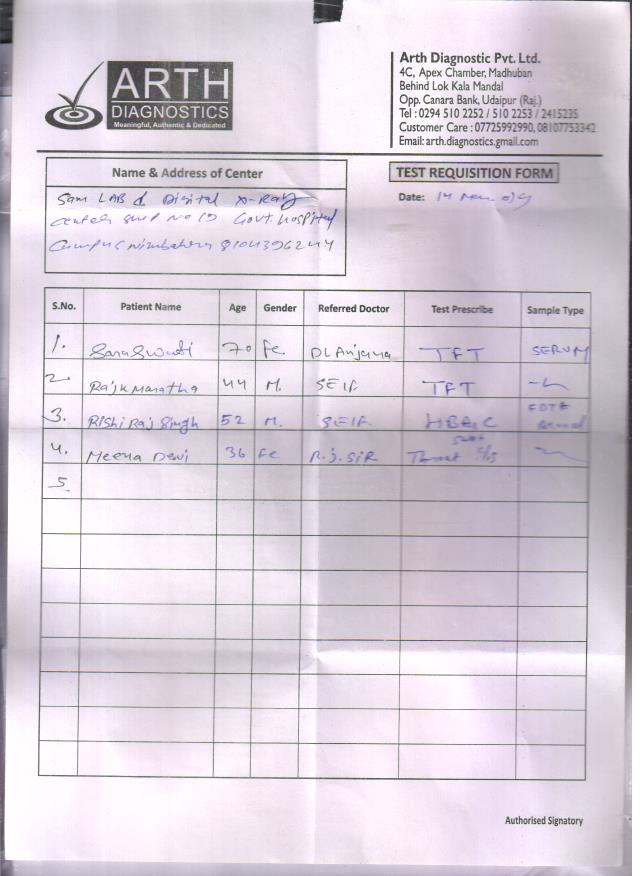 ARTH
DIAGNOSTICS
Meaningful, Authentic & Dedicated
Arth Diagnostic Pvt. Ltd.
4C, Apex Chamber, Madhuban
Behind Lok Kala Mandal
Opp. Canara Bank, Udaipur (Raj.)
Tel : 0294 510 2252 / 510 2253 / 2415235
Customer Care : 07725992990, 08107753342
Email: arth.diagnostics.gmail.com
Name & Address of Center
TEST REQUISITION FORM
Sam LAB & Digital X-Ray
Date: 14
Center No Govt. Hospital
Campus Nimbahera
S.No. Patient Name Age Gender Referred Doctor Test Prescribe Sample Type
1. Saraswati 70 Fe Anjana TFT SERUM
2. 44 M. SELF TFT
3. Rishi Raj Singh 52 M. SELF EDTA
4. Meena Devi 36 Fe R.J. SIR Throat
5
Authorised Signatory